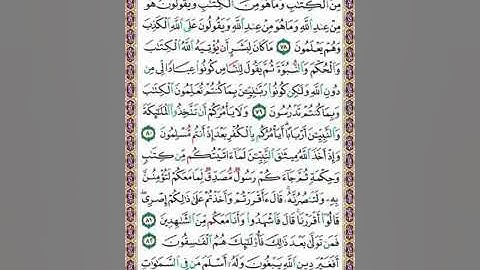 مِنَ ٱلْكِتَٰبِ وَمَا هُوَ مِنَ ٱلْكِتَٰبِ وَيَقُولُونَ هُوَ
مِنْ عِندِ ٱللَّهِ وَمَا هُوَ مِنْ عِندِ ٱللَّهِ وَيَقُولُونَ عَلَى ٱللَّهِ ٱلْكَذِبَ
وَهُمْ يَعْلَمُونَ ٧٨ مَا كَانَ لِبَشَرٍ أَن يُؤْتِيَهُ ٱللَّهُ ٱلْكِتَٰبَ
وَٱلْحُكْمَ وَٱلنُّبُوَّةَ ثُمَّ يَقُولَ لِلنَّاسِ كُونُوا۟ عِبَادًا لِّى مِن
دُونِ ٱللَّهِ وَلَٰكِن كُونُوا۟ رَبَّٰنِيِّـۧنَ بِمَا كُنتُمْ تُعَلِّمُونَ ٱلْكِتَٰبَ
وَبِمَا كُنتُمْ تَدْرُسُونَ ٧٩ وَلَا يَأْمُرَكُمْ أَن تَتَّخِذُوا۟ ٱلْمَلَٰٓئِكَةَ
وَٱلنَّبِيِّـۧنَ أَرْبَابًا ۗ أَيَأْمُرُكُم بِٱلْكُفْرِ بَعْدَ إِذْ أَنتُم مُّسْلِمُونَ
٨٠
وَإِذْ أَخَذَ ٱللَّهُ مِيثَٰقَ ٱلنَّبِيِّـۧنَ لَمَآ ءَاتَيْتُكُم مِّن كِتَٰبٍ
وَحِكْمَةٍ ثُمَّ جَآءَكُمْ رَسُولٌ مُّصَدِّقٌ لِّمَا مَعَكُمْ لَتُؤْمِنُنَّ
بِهِۦ وَلَتَنصُرُنَّهُۥ ۚ قَالَ ءَأَقْرَرْتُمْ وَأَخَذْتُمْ عَلَىٰ ذَٰلِكُمْ إِصْرِى ۖ
قَالُوٓا۟ أَقْرَرْنَا ۚ قَالَ فَٱشْهَدُوا۟ وَأَنَا۠ مَعَكُم مِّنَ ٱلشَّٰهِدِينَ ٨١
فَمَن تَوَلَّىٰ بَعْدَ ذَٰلِكَ فَأُو۟لَٰٓئِكَ هُمُ ٱلْفَٰسِقُونَ ٨٢
أَفَغَيْرَ دِينِ ٱللَّهِ يَبْغُونَ وَلَهُۥٓ أَسْلَمَ مَن فِى ٱلسَّمَٰوَٰتِ